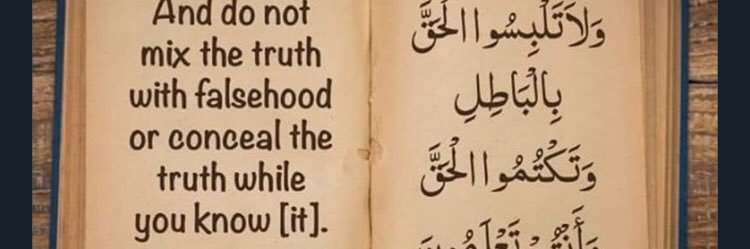 And do not
mix the truth
with falsehood
or conceal the
truth while
you know [it].
وَلَا تَلْبِسُوا الْحَقَّ
بِالْبَاطِلِ
وَتَكْتُمُوا الْحَقَّ
وَأَنْتُمْ تَعْلَمُونَ